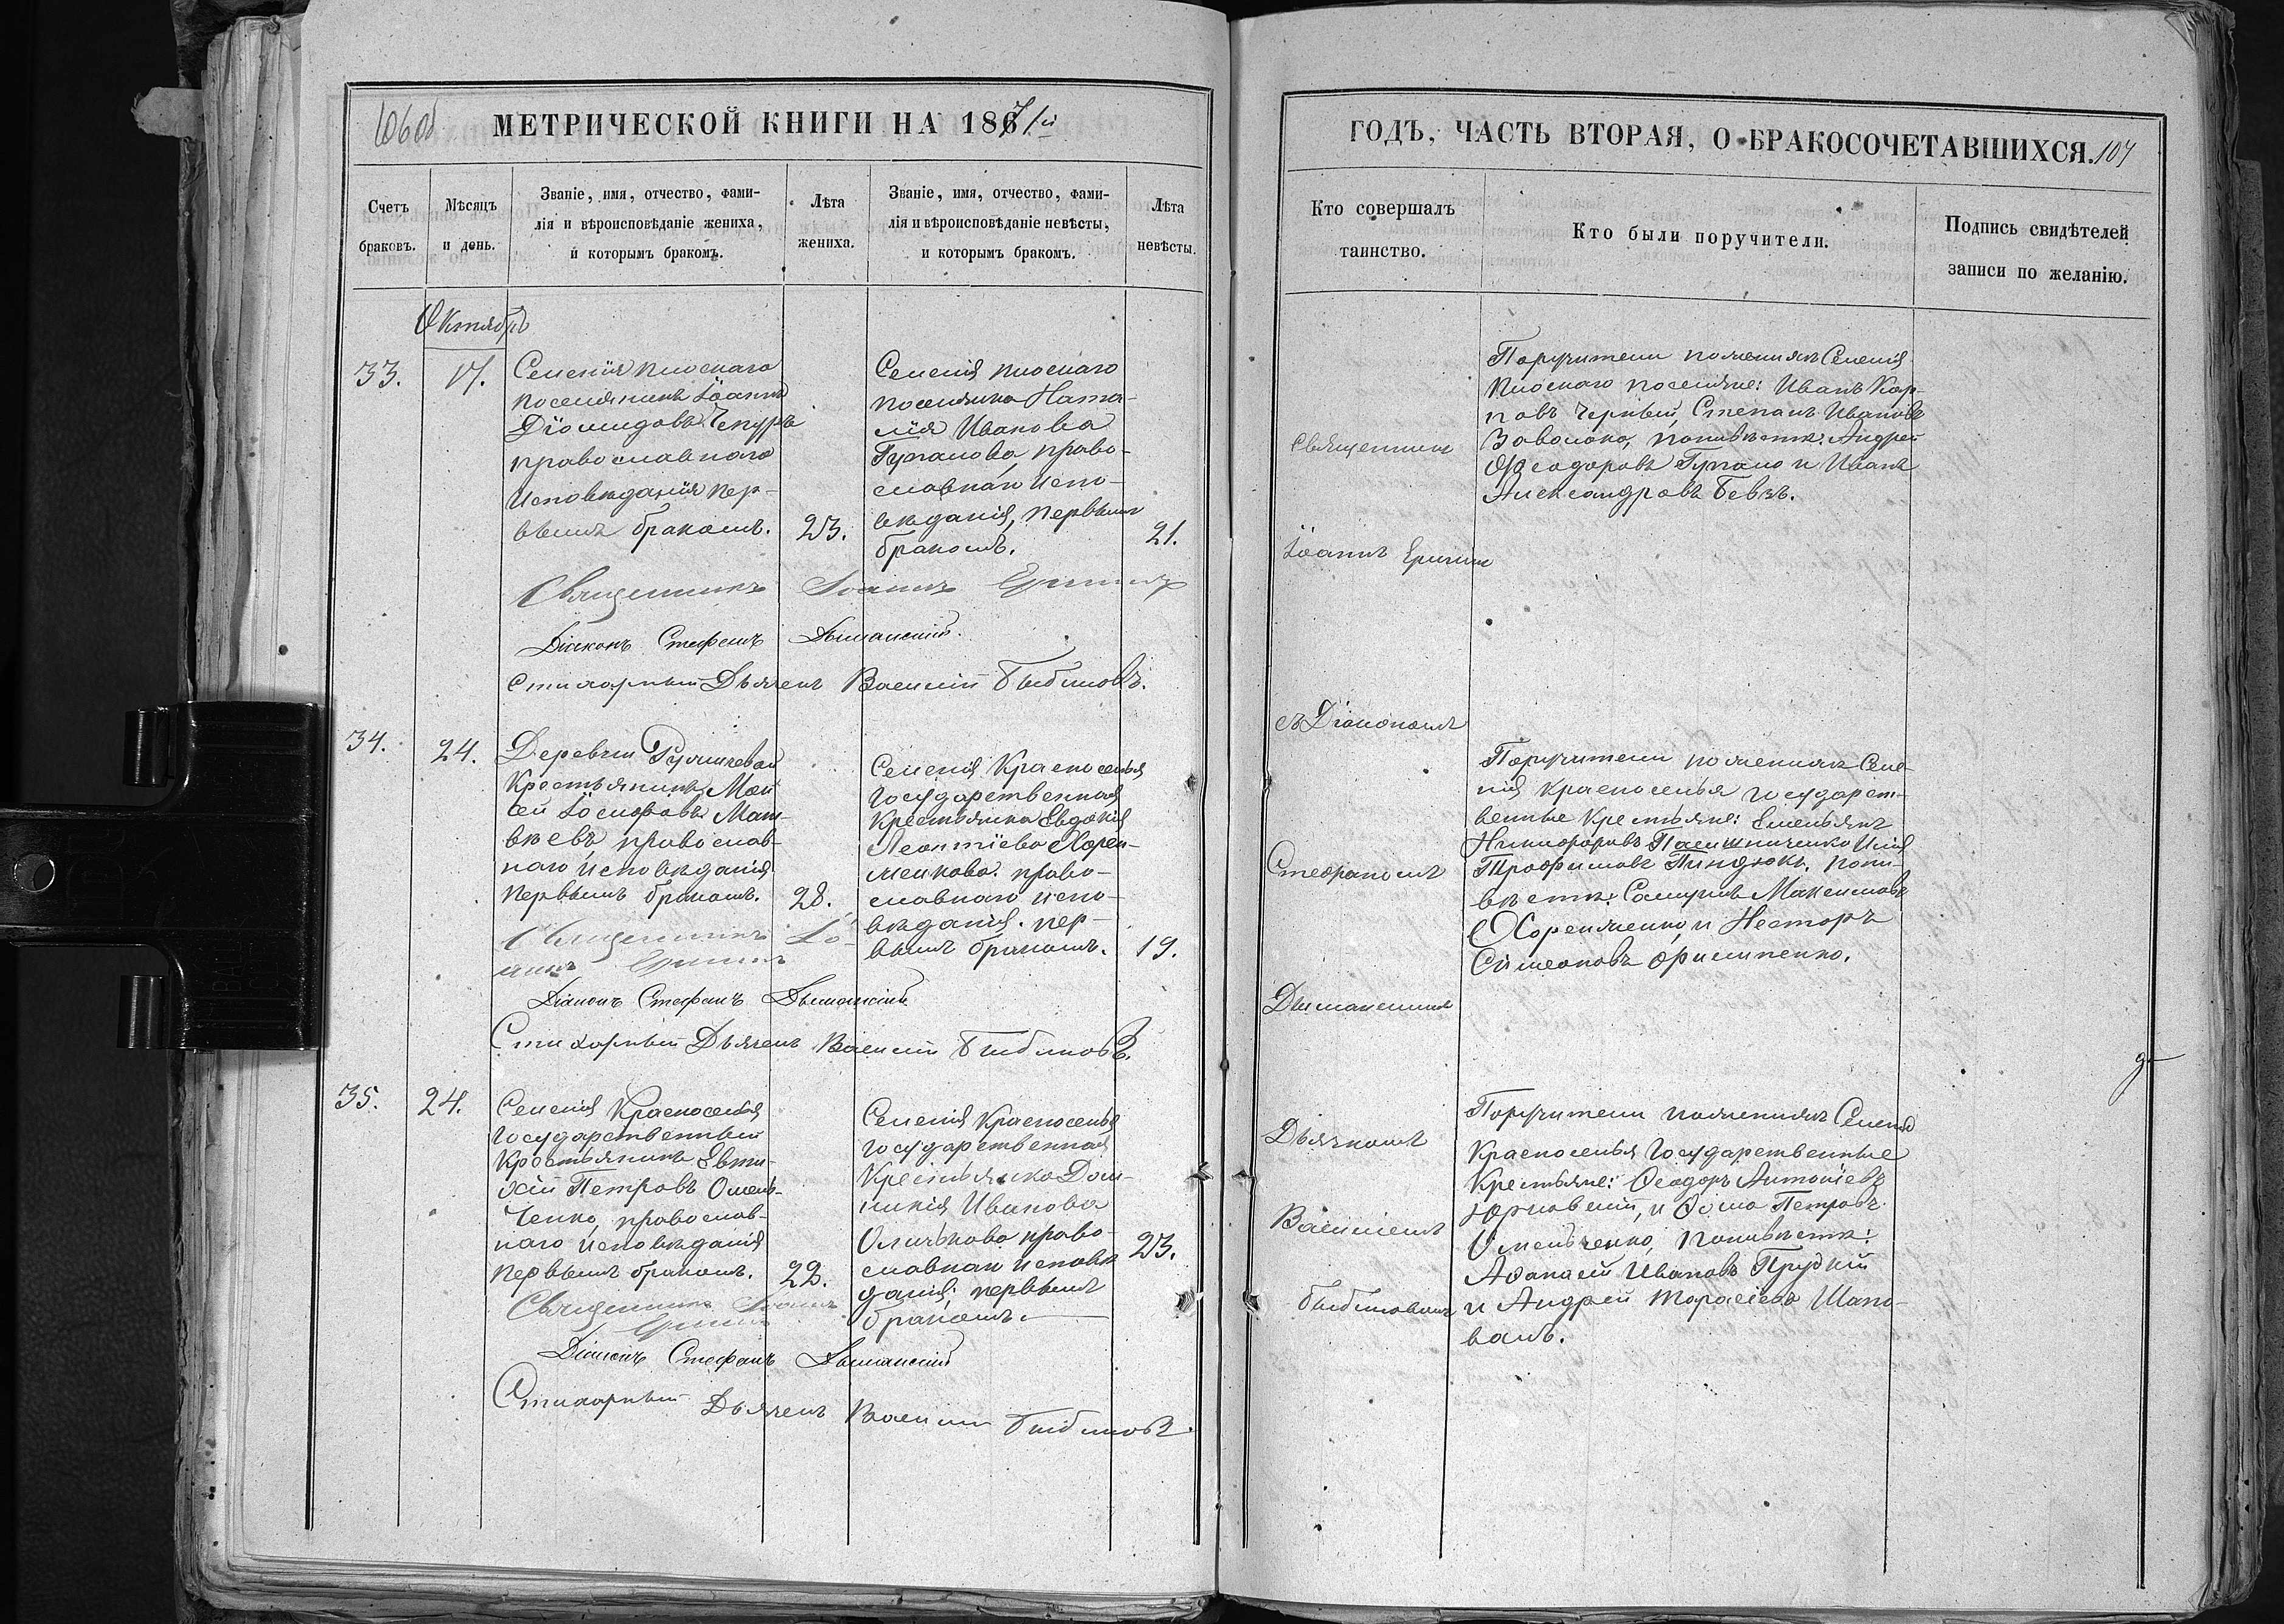 106об МЕТРИЧЕСКОЙ КНИГИ НА 1871й
Счетъ браковъ.
Мѣсяцъ и день.
Званіе, имя, отчество, фами-
лія и вѣроисповѣданіе жениха,
и которымъ бракомъ.
Лѣта
жениха.
Званіе, имя, отчество, фами-
лія и вѣроисповѣданіе невѣсты,
и которымъ бракомъ.
Лѣта
невѣсты.
Октябрь
33.
17.
Селенія
поселянинъ Іоаннъ
Діомидовъ Чепуръ
православнаго
исповѣданія пер-
вымъ бракомъ.
23.
Селенія
поселянка Ната-
лія Иванова
право-
славнаго испо-
вѣданія, первымъ
бракомъ.
21.
Священникъ Іоаннъ
Діаконъ Стефанъ Дыманскій.
Стихарный Дьячекъ Василій Бибиковъ.
34.
24.
Деревни
Крестьянинъ Мои
сей Іосифовъ Мат-
вѣевъ православ-
наго исповѣданія
первымъ бракомъ.
28.
Селенія Красноселья
государственная
Крестьянка Евдокія
Леонтіева Хорен-
женкова право-
славнаго испо-
вѣданія. пер-
вымъ бракомъ.
19.
Священникъ Іо-
аннъ
Діаконъ Стефанъ Дыманскій
Стихарный Дьячекъ Василій Бибиковъ.
35.
24.
Селенія Красноселья
государственный
Крестьянинъ Евти-
хій Петровъ Омель-
ченко, православ-
наго исповѣданія
первымъ бракомъ.
22.
Селенія Красноселья
государственная
Крестьянка Дом-
никія Иванова
право-
славнаго исповѣ
данія; первымъ
бракомъ.
23.
Священникъ Іоаннъ
Діаконъ Стефанъ Дыманскій
Стихарный Дьячекъ Василій Бибиковъ.
ГОДЪ, ЧАСТЬ ВТОРАЯ, О БРАКОСОЧЕТАВШИХСЯ. 107
Кто совершалъ
таинство.
Кто были поручители.
Подпись свидѣтелей
записи по желанію.
Священникъ
Іоаннъ
съ Діакономъ
Стефаномъ
Дыманскимъ
Дьячкомъ
Василіемъ
Бибиковымъ
Поручители по женихѣ Селенія
поселяне: Иванъ Кар-
повъ Черный, Степанъ Ивановъ
Заволока, по невѣстѣ: Андрей
Феодоровъ и Иванъ
Александровъ Бевзъ.
Поручители по женихѣ Селе-
нія Красноселья государст-
венные Крестьяне: Емельянъ
Никифоровъ Илія
Трофимовъ Пиндюкъ. по не-
вѣстѣ: Самуилъ Максимовъ
и Несторъ
Симеоновъ
Поручители по женихѣ Селенія
Красноселья Государственные
Крестьяне: Феодоръ Антоніевъ
и Фома Петровъ
Омельченко, по невѣстѣ:
Афанасій Ивановъ Прудкій
и Андрей Тарасіевъ Шапо-
валъ.